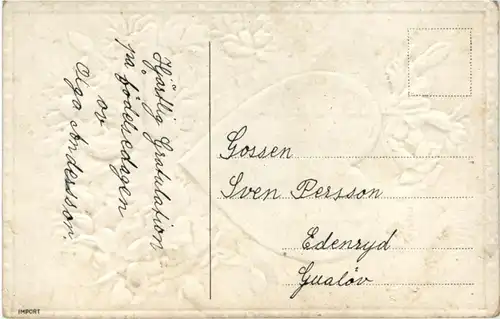 Hjärtlig Gratulation
på födelsedagen
av
Olga Andersson.
Gossen
Sven Persson
Edenryd
Gualöv
IMPORT